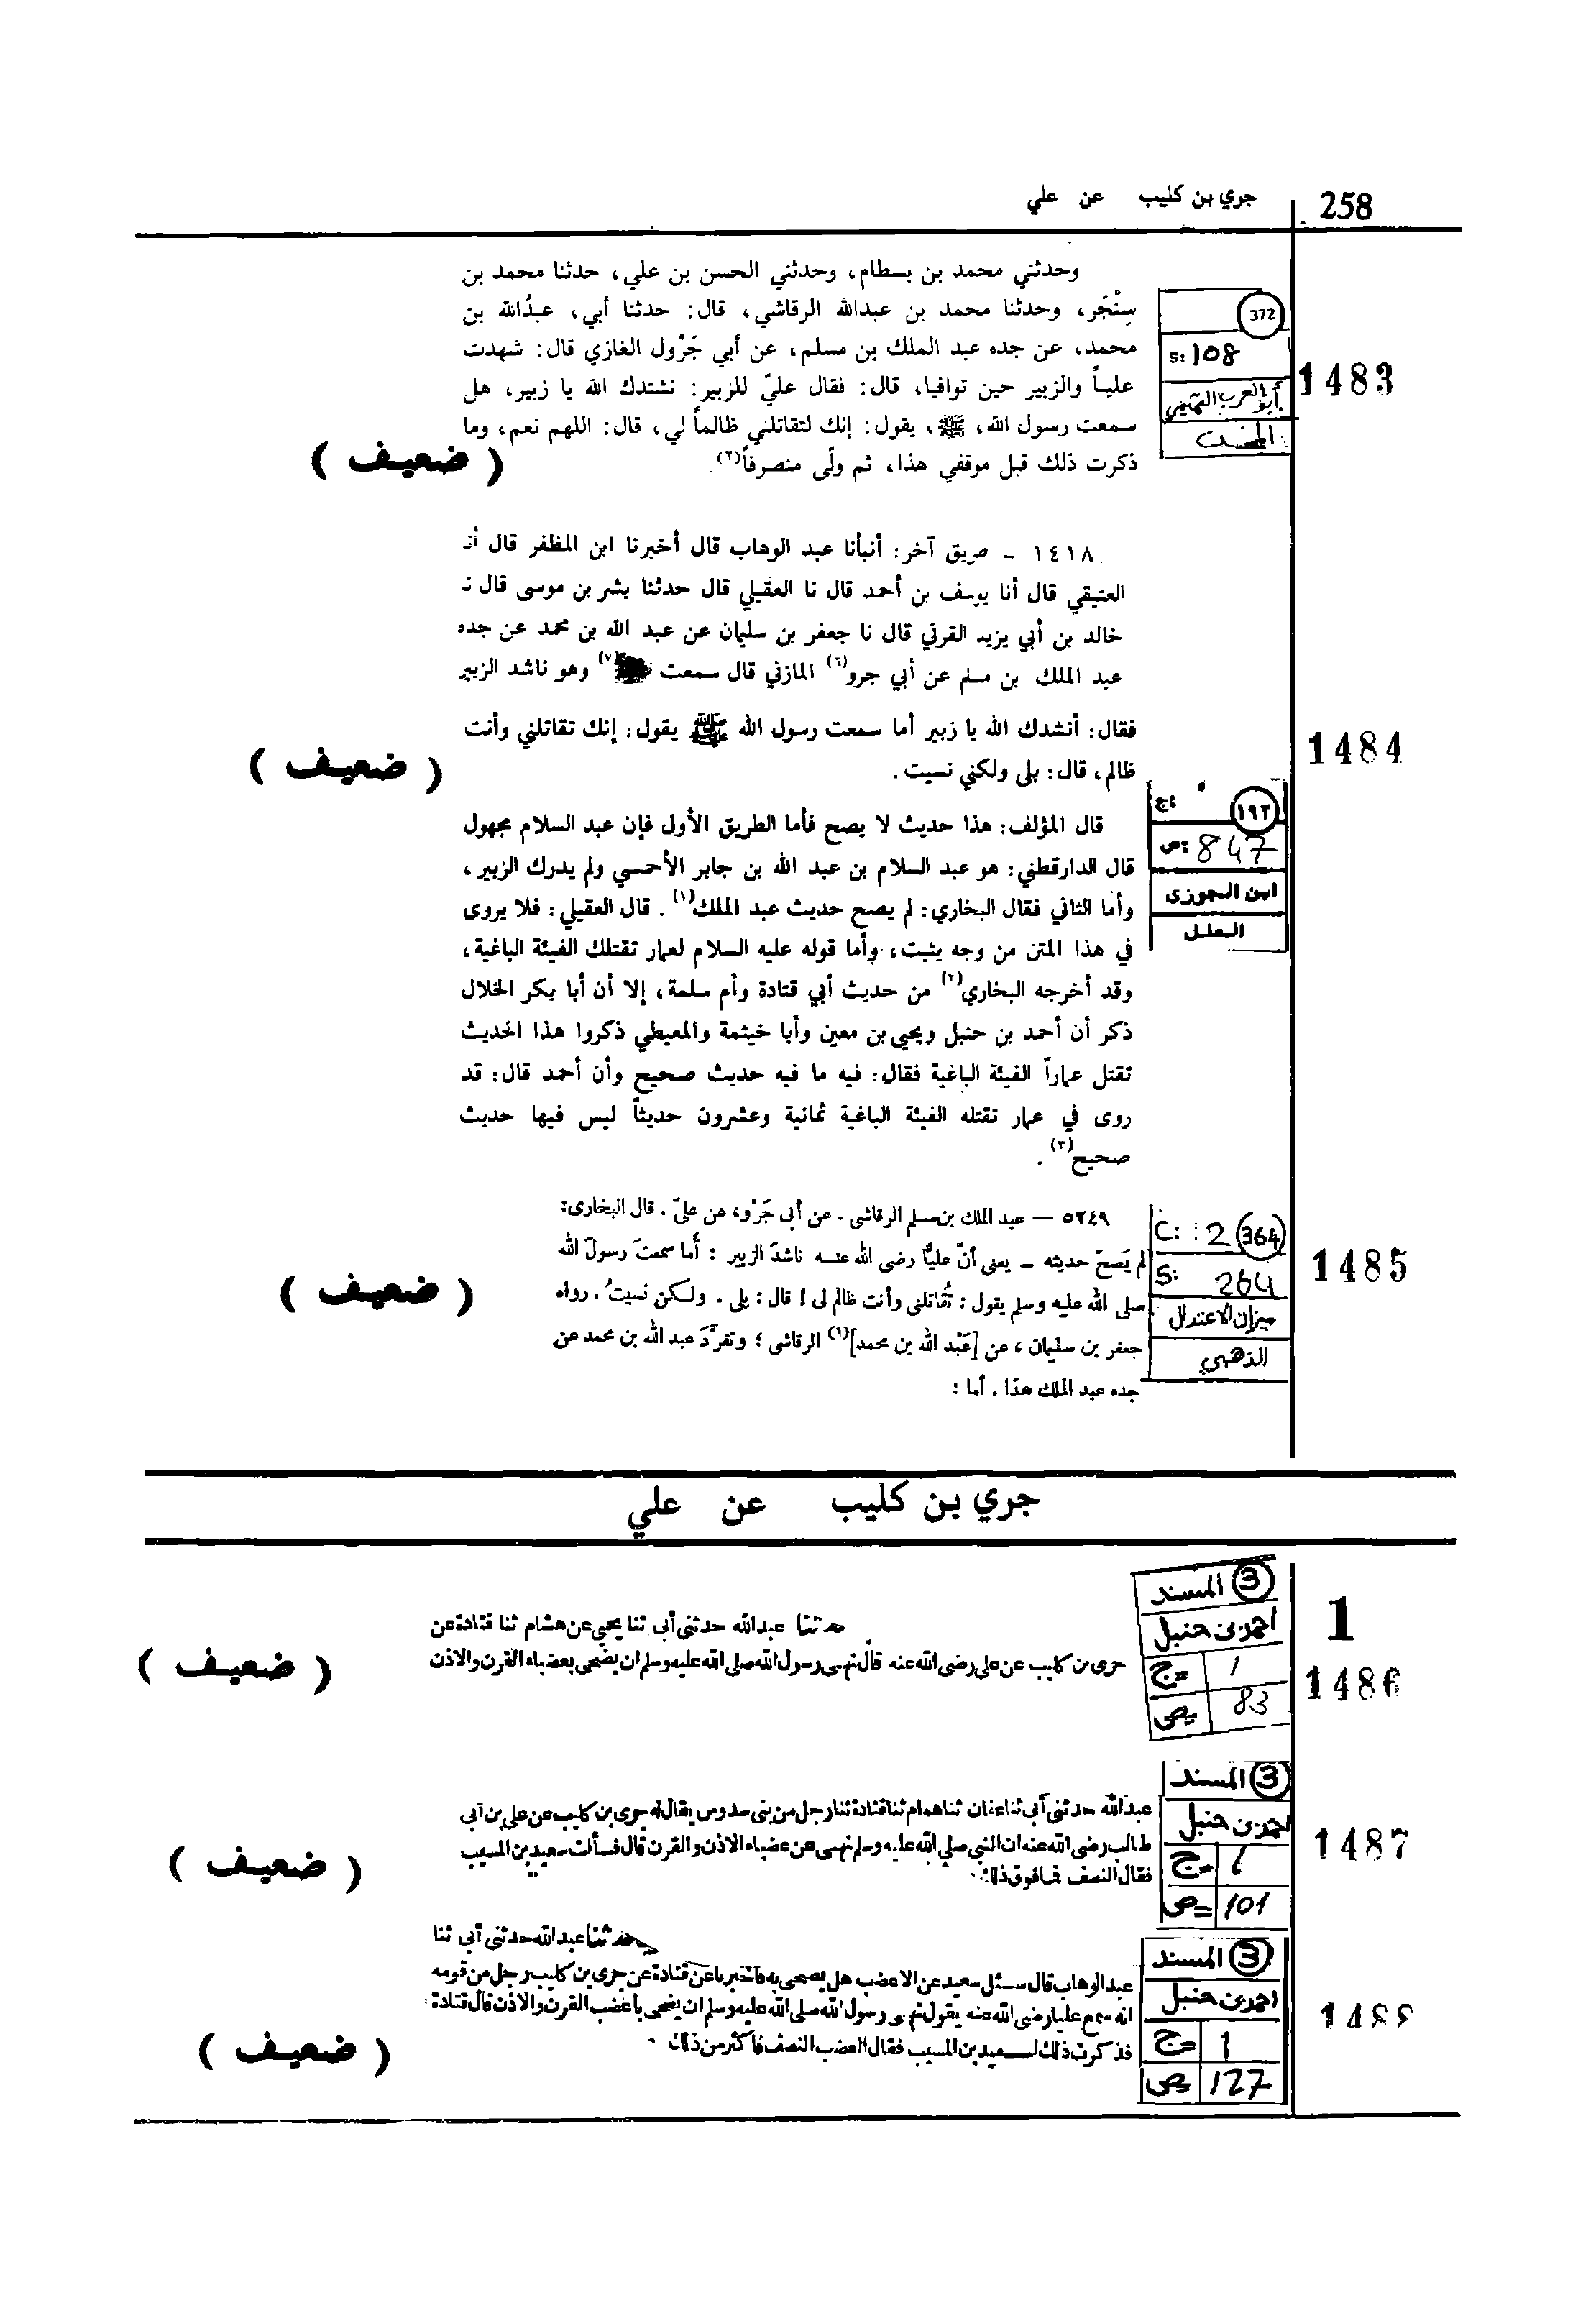 258
جري بن كليب عن علي
وحدثني محمد بن بسطام، وحدثني الحسن بن علي، حدثنا محمد بن
سِنْجَر، وحدثنا محمد بن عبدالله الرقاشي، قال: حدثنا أبي، عبدُالله بن
محمد، عن جده عبد الملك بن مسلم، عن أبي جَرْول الغازي قال: شهدت
علياً والزبير حين توافيا، قال: فقال عليّ للزبير: نشتدك الله يا زبير، هل
سمعت رسول الله، ﷺ، يقول: إنك لتقاتلني ظالماً لي، قال: اللهم نعم، وما
ذكرت ذلك قبل موقفي هذا، ثم ولّى منصرفاً(٢).
( ضعيف )
372
S: 108
أبو العرب التميمي
المحن
1483
١٤١٨ - طريق آخر: أنبأنا عبد الوهاب قال أخبرنا ابن المظفر قال أنـ
العتيقي قال أنا يوسف بن أحمد قال نا العقيلي قال حدثنا بشر بن موسى قال نـ
خالد بن أبي يزيد القرني قال نا جعفر بن سليمان عن عبد الله بن محمد عن جده
عبد الملك بن مسلم عن أبي جرو(٦) المازني قال سمعت (٧) وهو ناشد الزبير
فقال: أنشدك الله يا زبير أما سمعت رسول الله ﷺ يقول: إنك تقاتلني وأنت
ظالم، قال: بلى ولكني نسيت.
( ضعيف )
1484
ج:
١٩٢
ص: 847
ابن الجوزى
العلل
قال المؤلف: هذا حديث لا يصح فأما الطريق الأول فإن عبد السلام مجهول
قال الدارقطني: هو عبد السلام بن عبد الله بن جابر الأحمسي ولم يدرك الزبير،
وأما الثاني فقال البخاري: لم يصح حديث عبد الملك(١). قال العقيلي: فلا يروى
في هذا المتن من وجه يثبت، وأما قوله عليه السلام لعمار تقتلك الفيئة الباغية،
وقد أخرجه البخاري(٢) من حديث أبي قتادة وأم سلمة، إلا أن أبا بكر الخلال
ذكر أن أحمد بن حنبل ويحيى بن معين وأبا خيثمة والمعيطي ذكروا هذا الحديث
تقتل عماراً الفيئة الباغية فقال: فيه ما فيه حديث صحيح وأن أحمد قال: قد
روى في عمار تقتله الفيئة الباغية ثمانية وعشرون حديثاً ليس فيها حديث
صحيح(٣).
٥٢٤٩ — عبد الملك بن مسلم الرقاشى. عن أبى جَرْو، عن علىّ. قال البخارى:
لم يَصحّ حديثه - يعنى أنّ عليًّا رضى الله عنه ناشدَ الزبير: أما سمعتَ رسولَ الله
صلى الله عليه وسلم يقول: تُقاتلنى وأنت ظالم لى! قال: بلى. ولكن نسيتُ. رواه
جعفر بن سليمان، عن [عَبْد الله بن محمد](١) الرقاشى؛ وتفرَّدَ عبد الله بن محمد عن
جده عبد الملك هذا. أما:
( ضعيف )
C: 2
364
S: 264
ميزان الاعتدال
الذهبي
1485
جري بن كليب عن علي
1
3 المسند
احمد بن حنبل
ج= 1
ص= 83
حدثنا عبدالله حدثنى أبى ثنا يحيى عن هشام ثنا قتادة عن
جرى بن كليب عن على رضى الله عنه قال نهى رسول الله صلى الله عليه وسلم ان يضحى بعضباء القرن والاذن
( ضعيف )
1486
3 المسند
احمد بن حنبل
ج= 1
ص= 101
عبدالله حدثنى أبى ثنا عفان ثنا همام ثنا قتادة ثنا رجل من بنى سدوس يقال له جرى بن كليب عن على بن أبى
طالب رضى الله عنه ان النبى صلى الله عليه وسلم نهى عن عضباء الاذن والقرن قال فسألت سعيد بن المسيب
فقال النصف فما فوق ذلك
( ضعيف )
1487
3 المسند
احمد بن حنبل
ج= 1
ص= 127
حدثنا عبدالله حدثنى أبى ثنا
عبدالوهاب قال سئل سعيد عن الاعضب هل يضحى به فأخبرنا عن قتادة عن جرى بن كليب رجل من قومه
انه سمع عليا رضى الله عنه يقول نهى رسول الله صلى الله عليه وسلم ان يضحى بأعضب القرن والاذن قال قتادة
فذكرت ذلك لسعيد بن المسيب فقال العضب النصف فأكثر من ذلك
( ضعيف )
1488